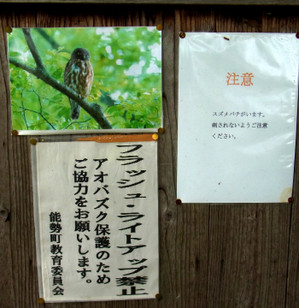 フラッシュ・ライトアップ禁止
アオバズク保護のため
ご協力をお願いします。
能勢町教育委員会
注意
スズメバチがいます。
刺されないようご注意
ください。